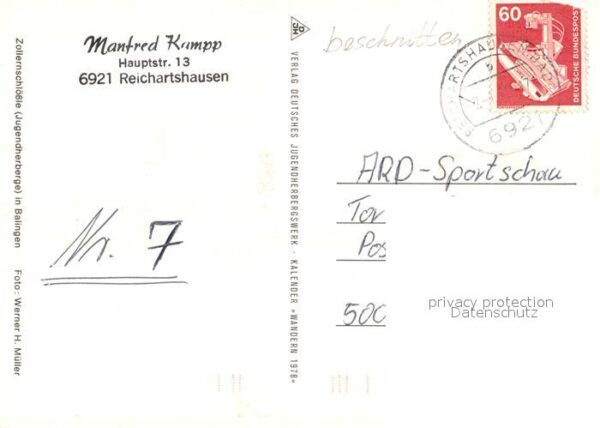 Manfred Kampp
Hauptstr. 13
6921 Reichartshausen
Zollernschlößle (Jugendherberge) in Balingen    Foto: Werner H. Müller
Nr. 7
VERLAG DEUTSCHES JUGENDHERBERGSWERK · KALENDER »WANDERN 1978«
beschnitten
60
DEUTSCHE BUNDESPOST
6921
ARD-Sportschau
Tor
Pos
500
privacy protection
Datenschutz